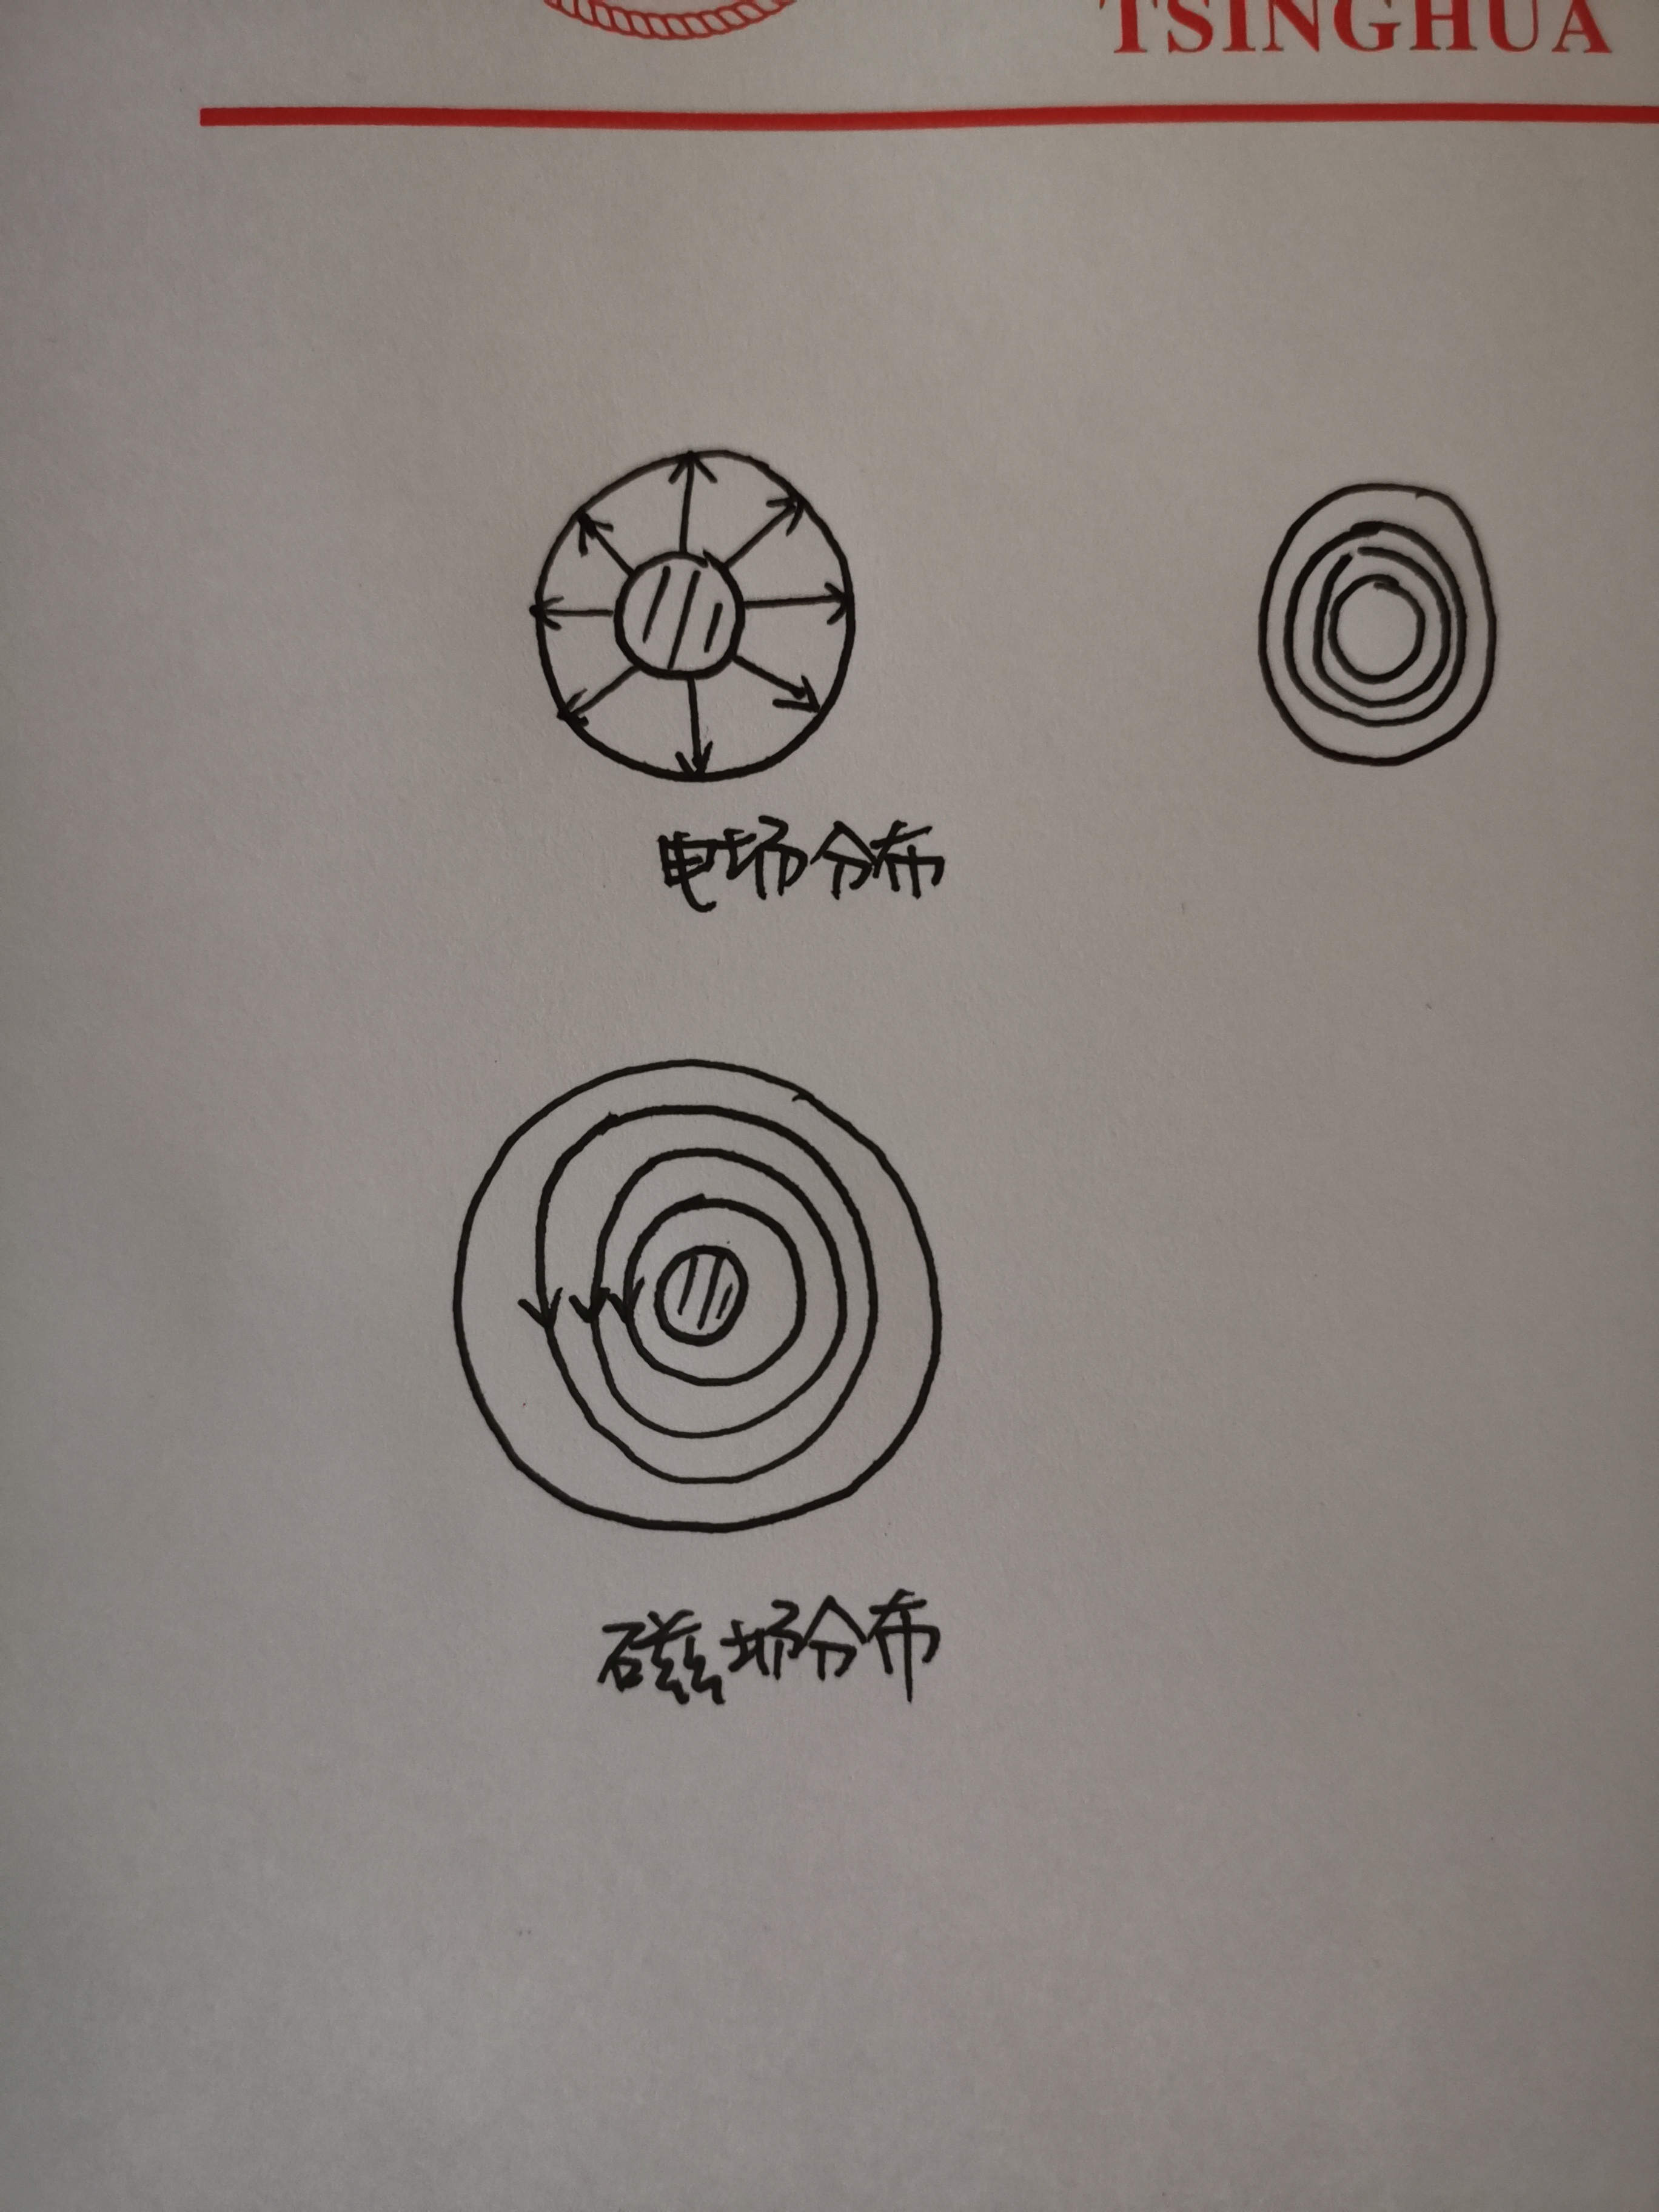 TSINGHUA
电场分布
磁场分布